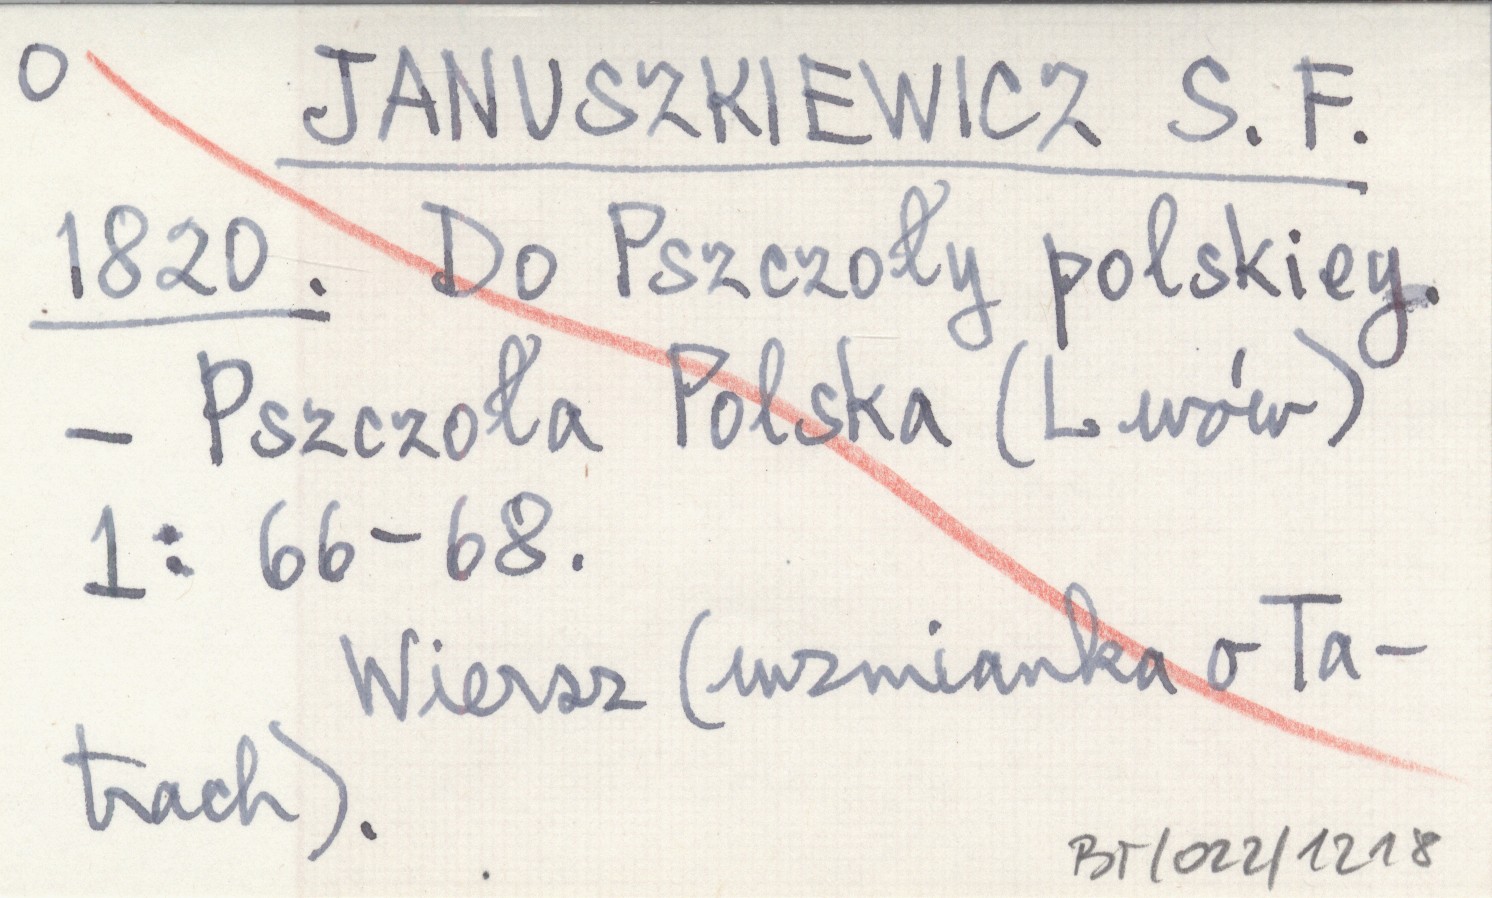 O JANUSZKIEWICZ S. F.
1820. Do Pszczoły polskiey.
- Pszczoła Polska (Lwów)
1: 66-68.
Wiersz (wzmianka o Ta-
trach).
BT/022/1218